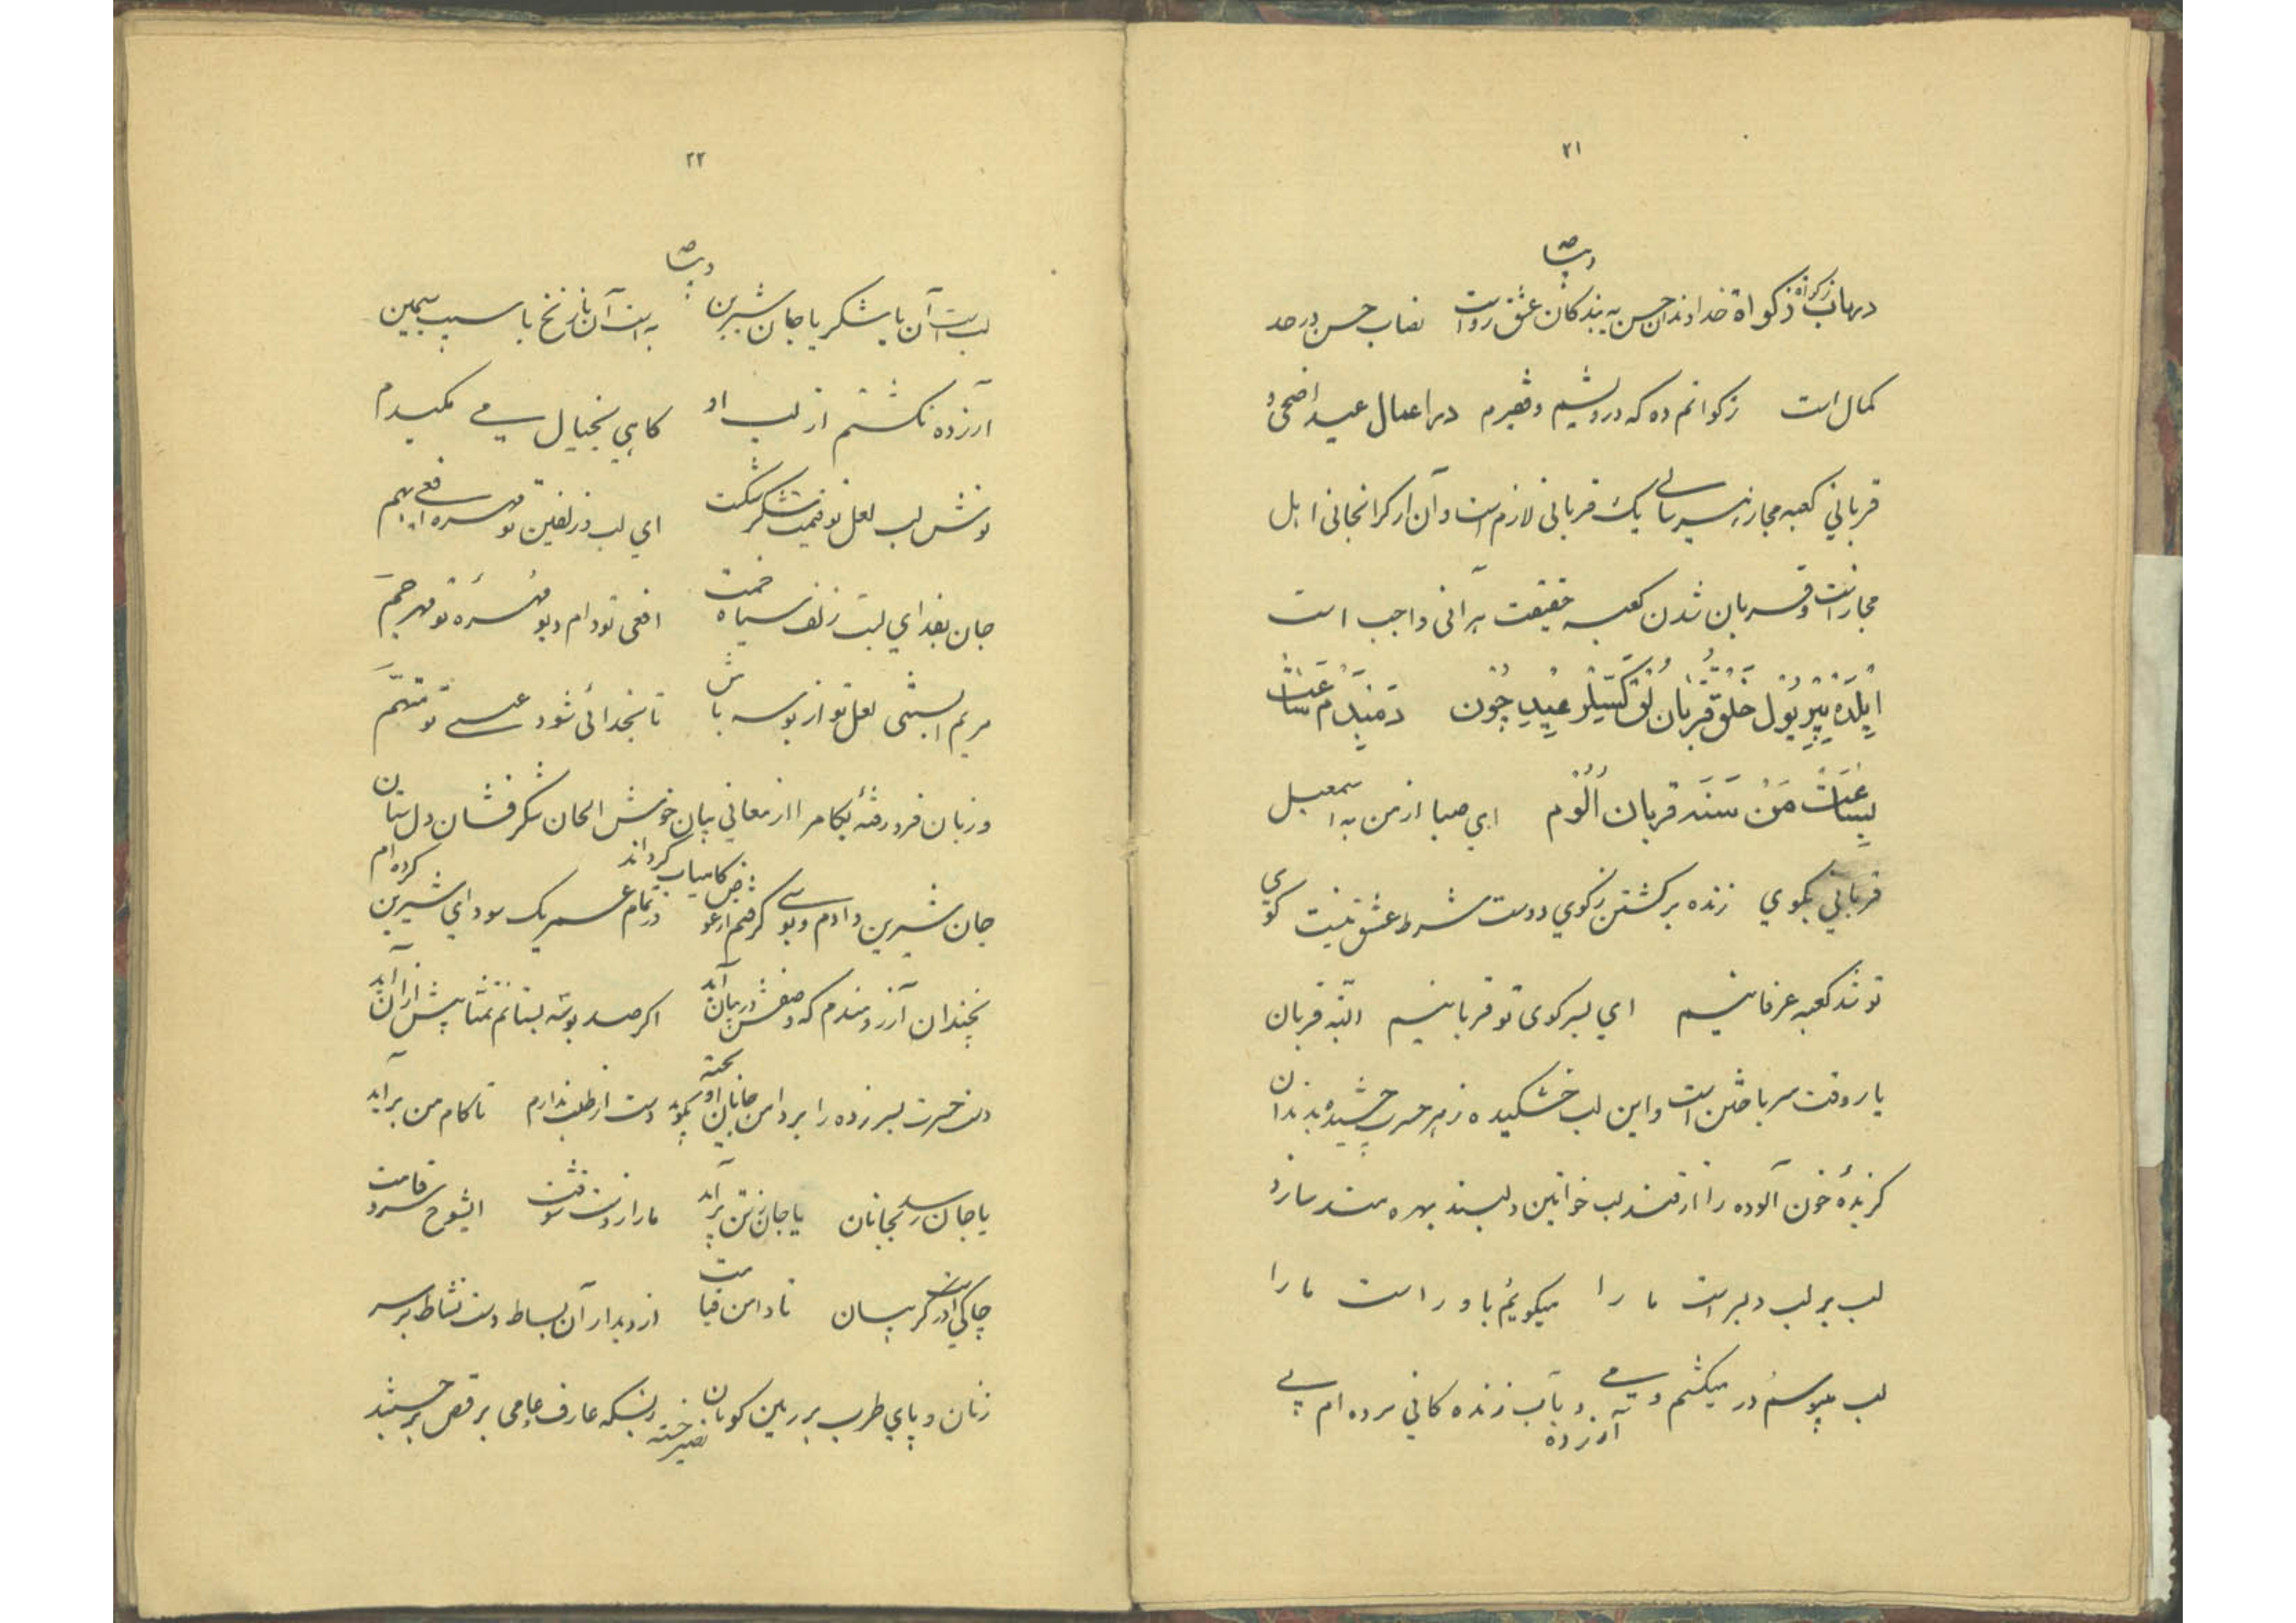 ۲۱
دیباچه
در باب زکواة خداوندان حسن به بندکان عشق رواست نصاب حسن در حد
کمال است زکواتم ده که درویشم و فقیرم در اعمال عید اضحی و
قربانی کعبه مجاز نیز سالی یک قربانی لازم است و آن از کرانجانی اهل
مجاز است و قربان شدن کعبه حقیقت هر آنی واجب است
ایلده بیر یول خلق قربان لوق کسیلر عید یچون دمبدم ساعت
بساعت من سنه قربان الوم ای صبا از من به اسمعیل
قربانی بکوی زنده برکشتن ز کوی دوست شرط عشق نیست کوی
تو شد کعبه عرفانیم ای بسر کوی تو قربانیم البته قربان
یار وقت سر باختن است و این لب خشکیده زهر حسرت چشیده بدندان
کزیدهٔ خون آلوده را از قند لب خواتین دلبند بهره مند سازد
لب بر لب دلبر است ما را میکویم باور است ما را
لب ببوسم در میکشم و می به آرزده و بآب زنده کانی برده ام پی
۲۲
دیباچه
لب است آن یا شکر یا جان شیرین به است آن یا زنخ یا سیب سیمین
آرزده نکشتم از لب او کاهی بخیال می مکیدم
نوش لب لعل تو قیمت شکر شکست ای لب و زلفین تو مهره و افعی بهم
جان بفدای لبت زلف سیاه خمت افعی تو دام دیو مهرهٔ تو مهر جم
مریم آبستنی لعل تو از بوسه باش تا بخدائی شود عیسی تو متهم
و زبان فرو رفته بکام را از معانی بیان خوش الحان شکر فشان دل ستان
کامیاب کرداند
جان شیرین دادم و بوسی کرفتم در عوض در تمام عمر یک سودای شیرین کرده ام
بچندان آرزومندم که وصفش در بیان آید اکر صد بوسه بستانم تمنا بیش از آن آید
دست حسرت بسر زده را بر دامن جانان آویخته بکوید دست از طلب ندارم تا کام من براید
یا جان رسد بجانان یا جان ز تن براید ما را ز دست شوقت الیشوخ سرو قامت
چاکی است در کریبان تا دامن قیامت از دیدار آن بساط دست نشاط بر سر
زنان و پای طرب بر زمین کوبان برخیزد بنسکه عارف و عامی برقص برجستند